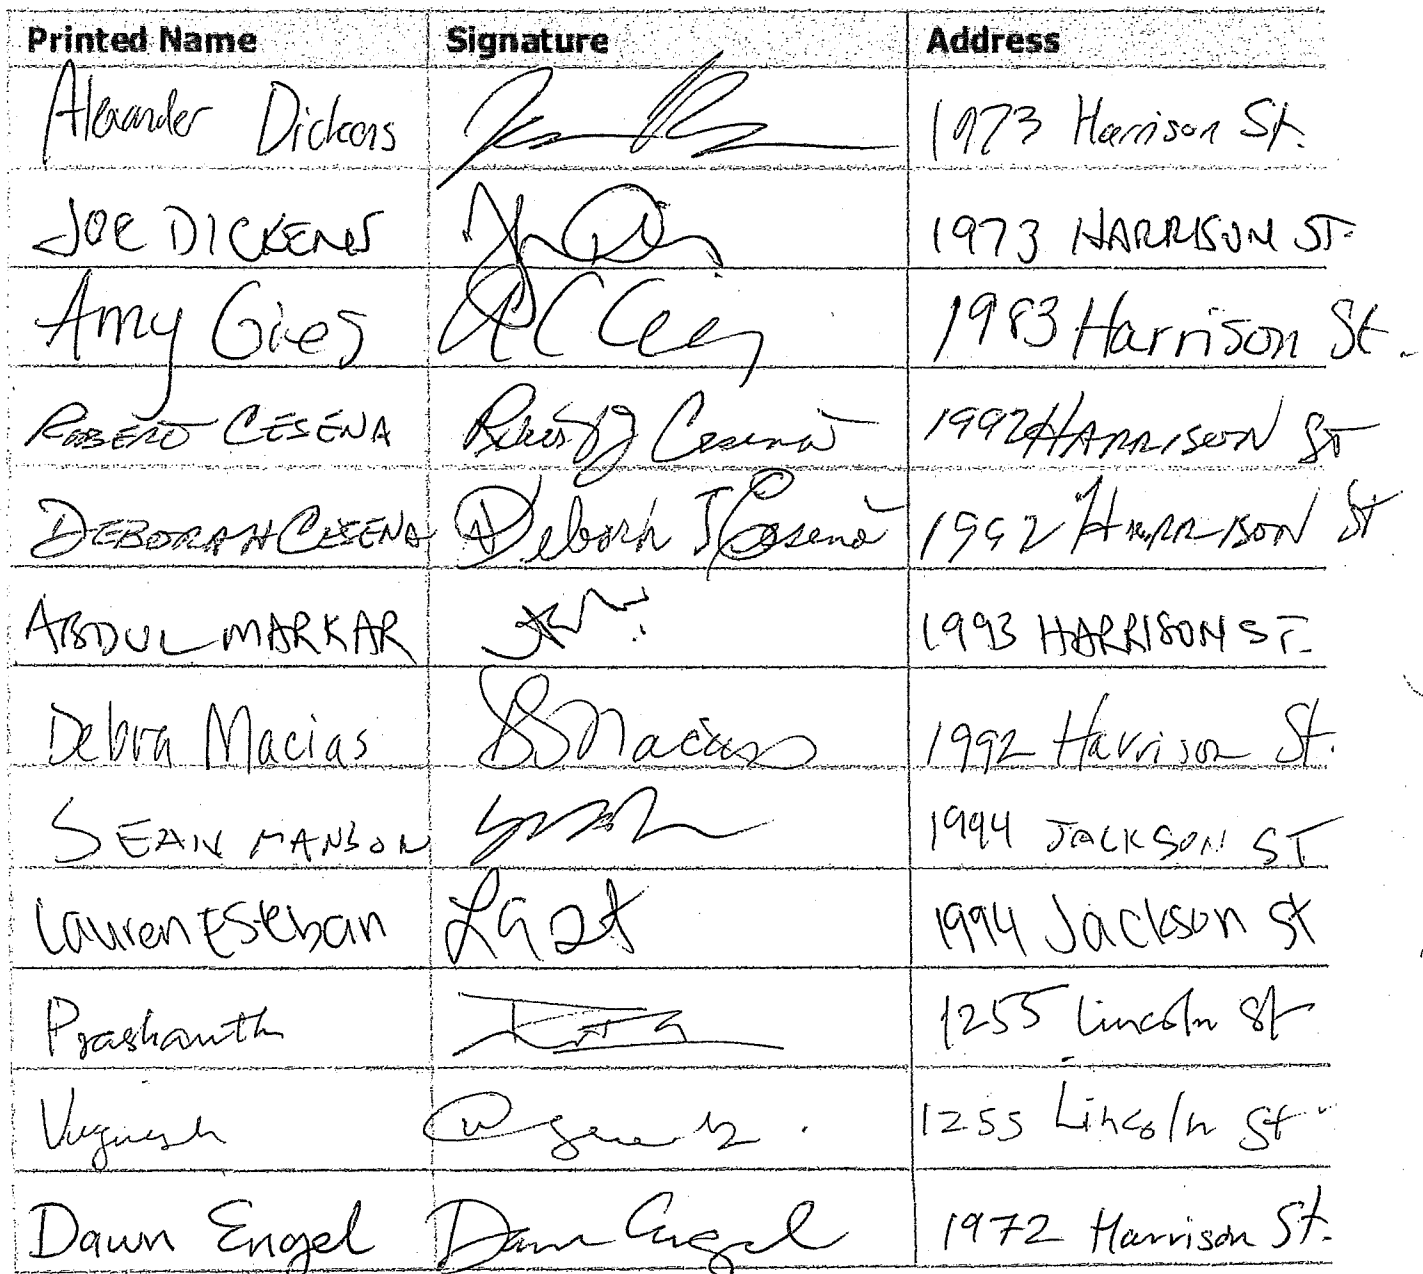 Printed Name Signature Address
Alexander Dickens 1973 Harrison St.
JOE DICKENS 1973 HARRISON ST.
Amy Gies 1983 Harrison St.
ROBERT CESENA Cesena 1992 HARRISON ST
DEBORAH CESENA Deborah J Cesena 1992 HARRISON St
ABDUL MARKAR 1993 HARRISON ST.
Debra Macias Macias 1992 Harrison St.
SEAN MANSON 1994 JACKSON ST
Lauren Esteban 1994 Jackson St
Prashanth 1255 Lincoln St
1255 Lincoln St
Dawn Engel Dawn Engel 1972 Harrison St.